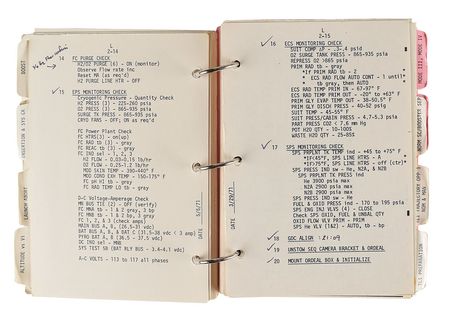 L
2-14
14 FC PURGE CHECK
H2/O2 PURGE (6) - ON (monitor)
Observe Flow rate inc
Reset MA (as req'd)
H2 PURGE LINE HTR - OFF
15 EPS MONITORING CHECK
Cryogenic Pressure - Quantity Check
H2 PRESS (3) - 225-260 psia
O2 PRESS (3) - psia
SURGE TK PRESS - 865-935 psia
CRYO FANS - OFF, ON as req'd
FC Power Plant Check
FC HTRS(3) - on(up)
FC RAD tb (3) - gray
FC REAC tb (3) - gray
FC IND sel - 1, 2, 3
H2 FLOW - 0.03-0.15 lb/hr
O2 FLOW - 0.25-1.2 lb/hr
MOD SKIN TEMP - 390-440°F
MOD COND EXH TEMP - 150-175°F
FC pH HI tb - gray
FC RAD TEMP LO tb - gray
D-C Voltage-Amperage Check
MN BUS TIE (2) - OFF (verify)
FC MNA tb - 1 & 2 gray, 3 bp
FC MNB tb - 1 & 2 bp, 3 gray
FC 1, 2, & 3 (check amps)
MAIN BUS A, B, (26.5-31 vdc)
BAT BUS A, B, & BAT C (31.5-38 vdc < 3 amp)
PYRO BAT A, B (36.5 - 37.5 vdc)
DC IND sel - MNB
SYS TEST SB (BAT RLY BUS - 3.4-4.1 vdc)
A-C VOLTS - 113 to 117 all phases
DATE
BOOST
INSERTION & SYS CK
ALTITUDE VS VI
L
2-15
16 ECS MONITORING CHECK
SUIT COMP ΔP - .3-.4 psid
O2 SURGE TANK PRESS - 865-935 psia
REPRESS O2 >865 psia
PRIM RAD tb - gray
*If PRIM RAD tb - 2
* ECS RAD FLOW AUTO CONT - 1 until*
* tb gray, then AUTO *
ECS RAD TEMP PRIM IN - 67-97° F
ECS RAD TEMP PRIM OUT - -20° to +63° F
PRIM GLY EVAP TEMP OUT - 38-50.5° F
PRIM GLY DISCH PRESS - 40-52 psig
SUIT TEMP - 45-55° F
SUIT PRESS/CABIN PRESS - 4.7-5.3 psia
PART PRESS CO2 < 7.6 mm Hg
POT H2O QTY - 10-100%
WASTE H2O QTY - 25-85%
17 SPS MONITORING CHECK
SPS PRPLNT TK TEMP ind - +45 to +75° F
*IF<45°F, SPS LINE HTRS - A *
*IF>75°F, SPS LINE HTRS - off (ctr)*
SPS PRESS IND sw - He, N2A, & N2B
SPS PRPLNT TK PRESS ind
He 3900 psia max
N2A 2900 psia max
N2B 2900 psia max
SPS PRESS IND sw - He
FUEL & OXID PRESS ind - 170 to 195 psia
SPS ENG INJ VLVS (4) - CLOSE
Check SPS OXID, FUEL & UNBAL QTY
OXID FLOW VLV PRIM - PRIM
SPS He VLV (1&2) - AUTO, tb - bp
18 GDC ALIGN
19 UNSTOW SEQ CAMERA BRACKET & ORDEAL
20 MOUNT ORDEAL BOX & INITIALIZE
DATE
MODE III, MODE IV
TLI PREPARATION